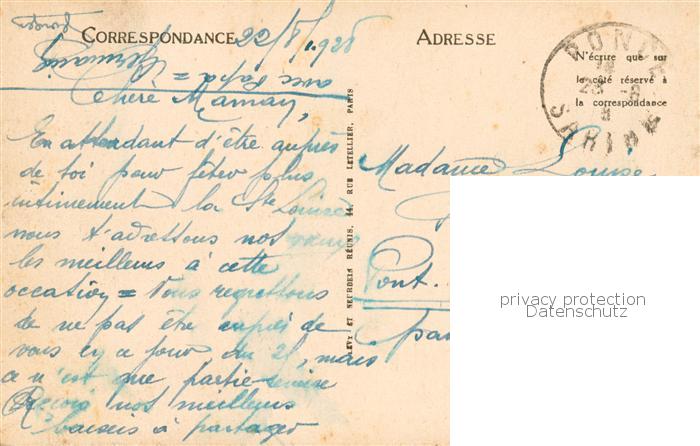 CORRESPONDANCE 22/8/1928
ADRESSE
N'écrire que sur
le côté réservé à
la correspondance
avec papa =
Chère Maman,
En attendant d'être auprès
de toi pour fêter plus
intimement la Ste Louise
nous t'adressons nos vœux
les meilleurs à cette
occasion = Nous regrettons
de ne pas être auprès de
vous ce jour du 25, mais
ce n'est que partie remise
Reçois nos meilleurs
baisers à partager
LÉVY ET NEURDEIN RÉUNIS, 44, RUE LETELLIER, PARIS
Madame Louise
Pont.
par
privacy protection
Datenschutz